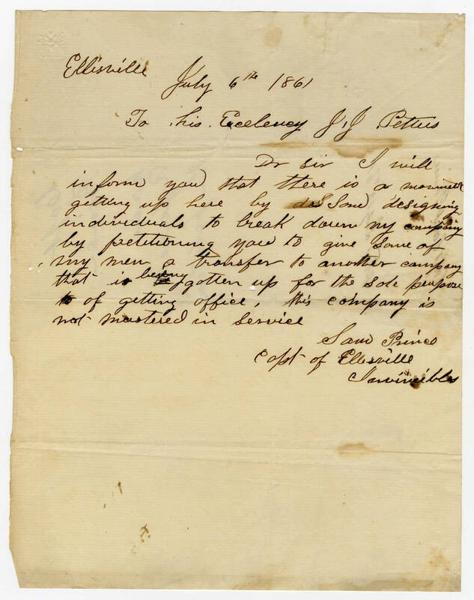 Ellisville
July 6th 1861
To his Excelency J J Pettus
Dr Sir I will
inform you that there is a
getting up here by some designing
individuals to break down my company
by petitioning you to give some of
my men a transfer to another company
that is being gotten up for the sole purpose
of getting office, this company is
not mustered in service
Sam Prince
Capt of Ellisville
Invincibles